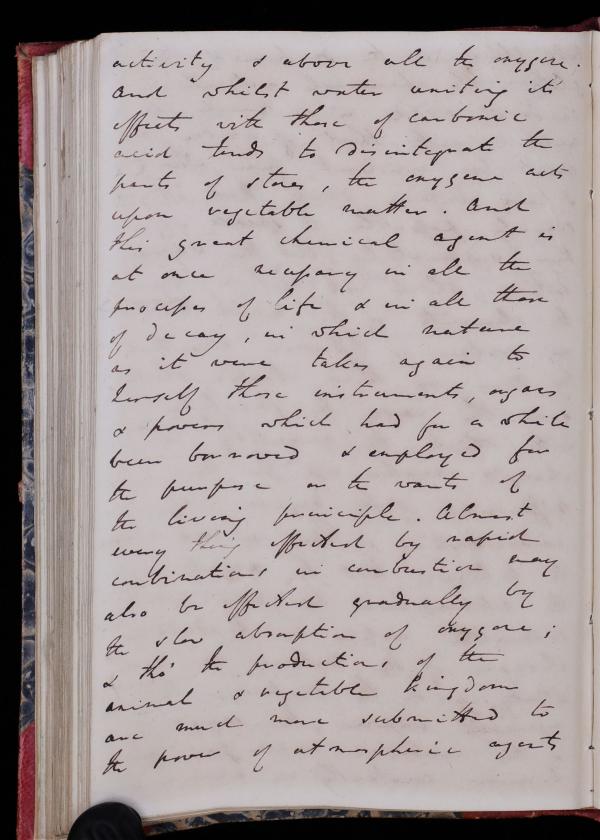 activity & above all the oxygene.
And whilst water uniting its
effects with those of carbonic
acid tends to disintegrate the
parts of stones, the oxygene acts
upon vegetable matter. And
this great chemical agent is
at once necessary in all the
processes of life & in all those
of decay, in which nature
as it were takes again to
herself those instruments, organs
& powers which had for a while
been borrowed & employed for
the purpose or the wants of
the living principle. Almost
every thing effected by rapid
combinations in combustion may
also be effected gradually by
the slow absorption of oxygene;
& tho' the productions of the
animal & vegetable kingdom
are much more submitted to
the power of atmospheric agents